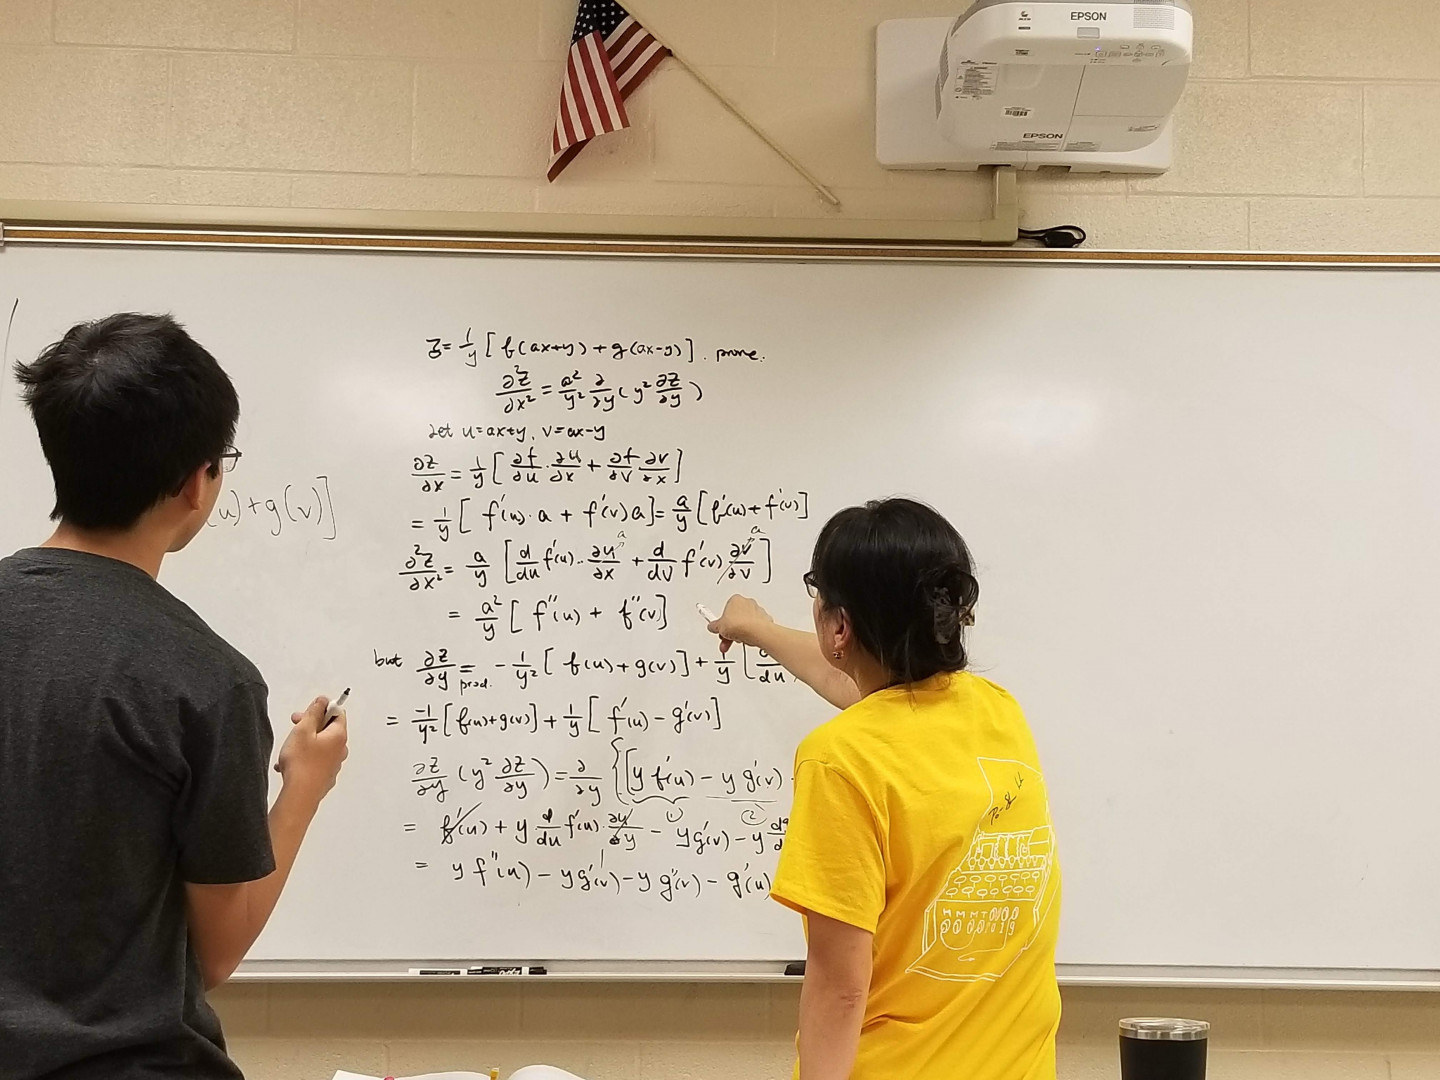 EPSON
EPSON
z = 1/y [ f(ax+y) + g(ax-y) ] . prove.
∂²z/∂x² = a²/y² ∂/∂y ( y² ∂z/∂y )
Let u=ax+y, v=ax-y
∂z/∂x = 1/y [ ∂f/∂u · ∂u/∂x + ∂f/∂v ∂v/∂x ]
= 1/y [ f'(u) · a + f'(v) a ] = a/y [ f'(u) + f'(v) ]
∂²z/∂x² = a/y [ d/du f'(u) · ∂u/∂x a + d/dv f'(v) ∂v/∂v a ]
= a²/y [ f''(u) + f''(v) ]
but ∂z/∂y = prod. - 1/y² [ f(u) + g(v) ] + 1/y [ du
= -1/y² [ f(u) + g(v) ] + 1/y [ f'(u) - g'(v) ]
∂z/∂y ( y² ∂z/∂y ) = ∂/∂y { [ y f'(u) - y g'(v)
① ②
= f'(u) + y d/du f'(u) · ∂u/∂y - y g'(v) - y
= y f''(u) - y g'(v) - y g''(v) - g'(u)
(u) + g(v) ]